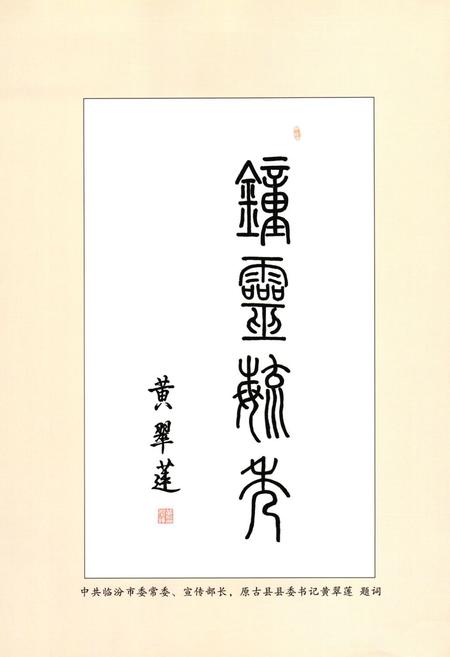 鐘靈毓秀
黄翠莲
中共临汾市委常委、宣传部长，原古县县委书记黄翠莲 题词